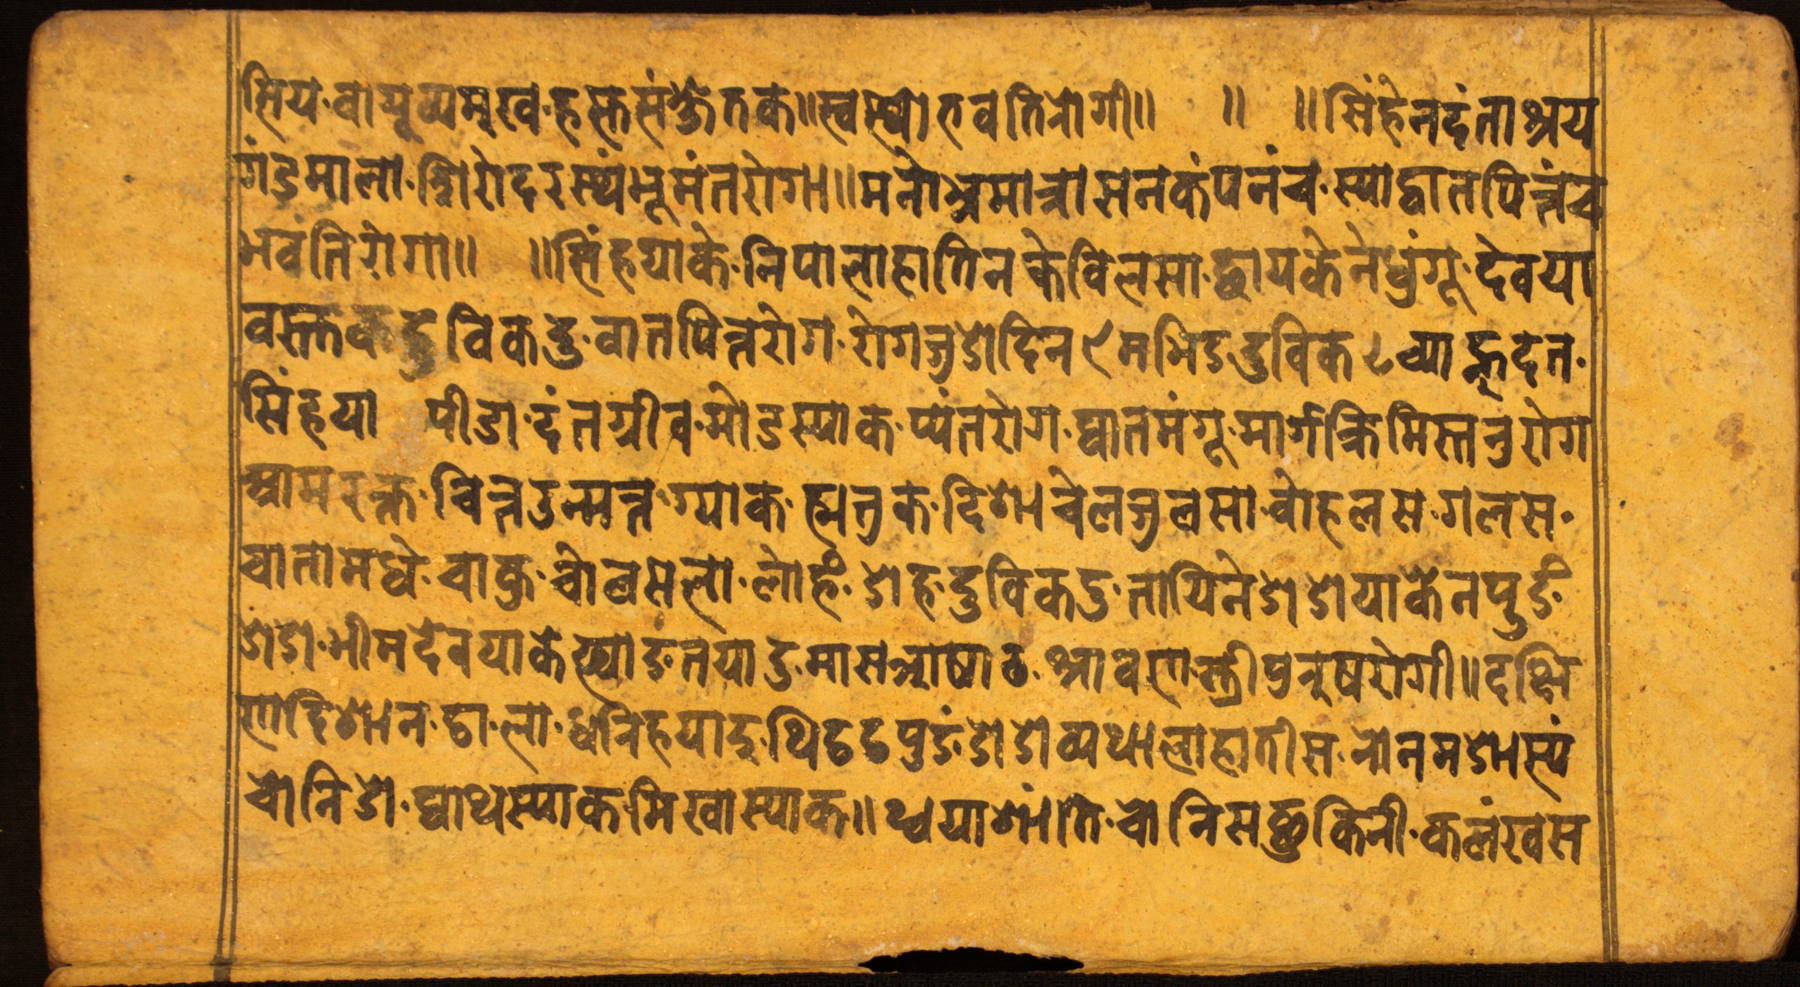 सिय·वायूव्यमूखव·हस्तसंक्षेतक॥स्वस्थो रुवतिरोगी॥ ॥ ॥सिंहेनदंताश्रय
गंडमाला·शिरोदरस्थं भूमंतरोगा॥मनोभ्रमात्रासनकंपनंच·स्याद्वातपित्तंच
भवंतिरोगा॥ ॥सिंहयाके·निपालाहातिन केविलसा·छायकेनेधुंगू·देवया
वस्तकदुविकदु·वातपित्तरोग·रोगजुडोदिन ९मभिङदुविक ८व्याह्नदत·
सिंहया पीडा·दंतग्रीव·मोडस्याक·प्यंतरोग·घातमंगू·मार्गक्रिमिस्तनुरोग
श्वामरक्त·चित्तउन्मत्त·ग्याक·ह्मनुक·दिशाचेलजुवसा·वोहलस·गलस·
चातामधे·वाकु·चोवसलो·लोहँ·डोह·दुविकउ·तायिनेडोडोयाकेनपुङं
डोडो·भीमदेवयाकेख्याङंतयादु·मासआषाढ·श्रावणस्त्रीपुरुषरोगी॥दक्षि
णदिशान·ठा·ला·ध्वनिहयादु·थिढढपुङंडोडोव्यथालाहातीस·नोनमडोस्यं
चोनिडो·घाथस्याक·मिखास्याक॥थ्वयाशांति·चोनिसछुकिनी·कलंखस